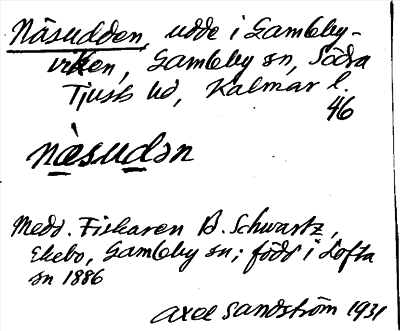 Näsudden, udde i Gamleby-
viken, Gamleby sn, Södra
Tjusts hd, Kalmar l.
46
næsudən
Medd. Fiskaren B. Schwartz,
Ekebo, Gamleby sn; född i Lofta
sn 1886
Axel Sandström 1931